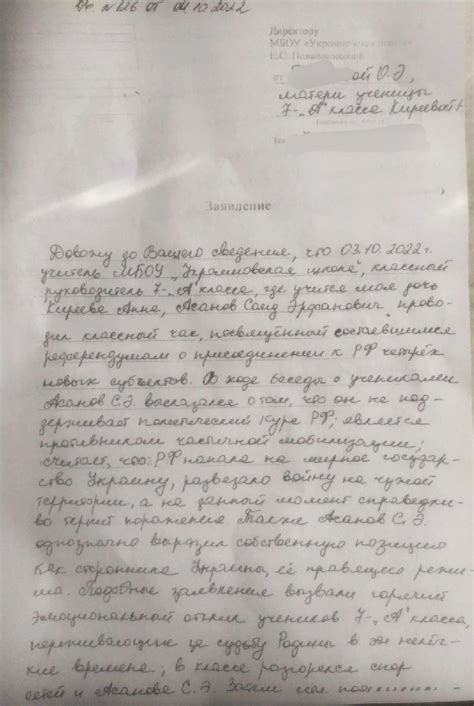 Вх. №226 от 04.10.2022
Директору
МБОУ «Укромновская школа»
от ой О.Э,
матери ученицы
7-„А" класса Киреевой
Заявление
Довожу до Вашего сведения, что 03.10.2022 г.
учитель МБОУ „Укромновская школа", классный
руководитель 7-„А" класса, где учится моя дочь
Киреева Анна, Асанов Саид Эрфанович прово-
дил классный час, посвещённый состоявшимся
референдумам о присоединении к РФ четырёх
новых субъектов. В ходе беседы с учениками
Асанов С.Э. высказался о том, что он не под-
держивает политический курс РФ; является
противником частичной мобилизации;
считает, что РФ напала на мирное государ-
ство Украину, развезало войну на чужой
территории, а на данный момент справедли-
во терпит поражение. Также Асанов С.Э.
однозначно выразил собственную позицию
как сторонника Украины, её правящего режи-
ма. Подобные заявления вызвали горячий
эмоциональный отклик учеников 7-„А" класса,
переживающих за судьбу Родины в эти нелёг-
кие времена; в классе разгорелся спор
детей и Асанова С.Э. Затем